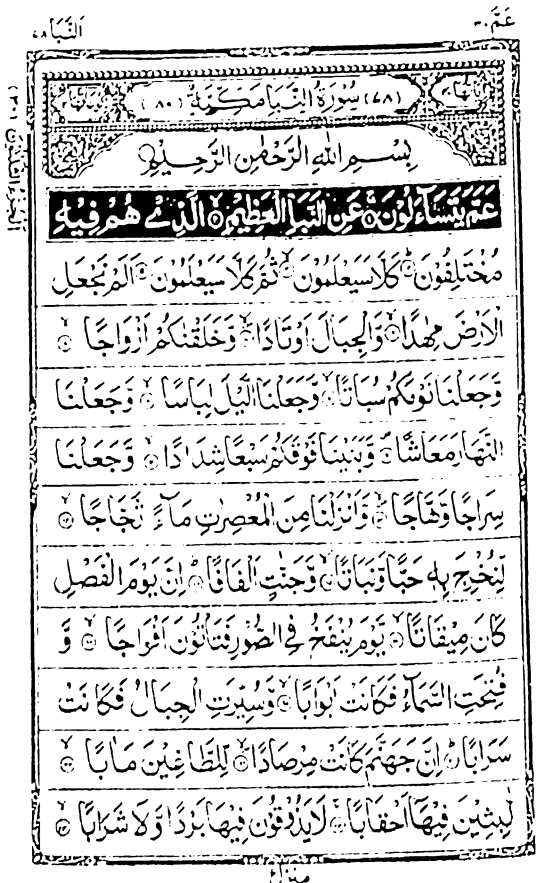 عَمَّ ٣٠
اَلنَّبَا ٧٨
(٧٨) سُوْرَةُ النَّبَاِ مَكِّيَّةٌ (٨٠)
بِسْمِ اللهِ الرَّحْمٰنِ الرَّحِيْمِ
عَمَّ يَتَسَآءَلُوْنَ ۚ عَنِ النَّبَاِ الْعَظِيْمِ ۙ الَّذِيْ هُمْ فِيْهِ
مُخْتَلِفُوْنَ ؕ كَلَّا سَيَعْلَمُوْنَ ۙ ثُمَّ كَلَّا سَيَعْلَمُوْنَ ۵ اَلَمْ نَجْعَلِ
الْاَرْضَ مِهٰدًا ۙ وَّالْجِبَالَ اَوْتَادًا ۪ۙ وَّخَلَقْنٰكُمْ اَزْوَاجًا ۙ
وَّجَعَلْنَا نَوْمَكُمْ سُبَاتًا ۙ وَّجَعَلْنَا الَّيْلَ لِبَاسًا ۙ وَّجَعَلْنَا
النَّهَارَ مَعَاشًا ۪ وَّبَنَيْنَا فَوْقَكُمْ سَبْعًا شِدَادًا ۙ وَّجَعَلْنَا
سِرَاجًا وَّهَّاجًا ۪ۙ وَّاَنْزَلْنَا مِنَ الْمُعْصِرٰتِ مَآءً ثَجَّاجًا ۙ
لِّنُخْرِجَ بِهٖ حَبًّا وَّنَبَاتًا ۙ وَّجَنّٰتٍ اَلْفَافًا ؕ اِنَّ يَوْمَ الْفَصْلِ
كَانَ مِيْقَاتًا ۙ يَّوْمَ يُنْفَخُ فِي الصُّوْرِ فَتَاْتُوْنَ اَفْوَاجًا ۙ وَّ
فُتِحَتِ السَّمَآءُ فَكَانَتْ اَبْوَابًا ۙ وَّسُيِّرَتِ الْجِبَالُ فَكَانَتْ
سَرَابًا ؕ اِنَّ جَهَنَّمَ كَانَتْ مِرْصَادًا ۙ لِّلطَّاغِيْنَ مَاٰبًا ۙ
لّٰبِثِيْنَ فِيْهَاۤ اَحْقَابًا ۚ لَا يَذُوْقُوْنَ فِيْهَا بَرْدًا وَّلَا شَرَابًا ۙ
منزل